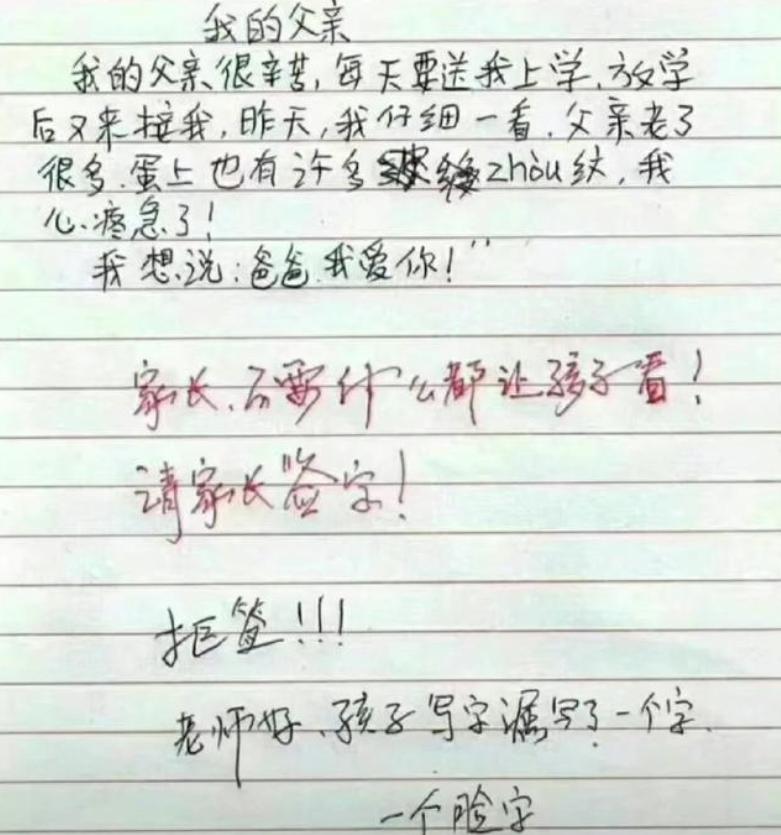 我的父亲
我的父亲很辛苦,每天要送我上学,放学
后又来接我,昨天,我仔细一看,父亲老了
很多.蛋上也有许多zhòu纹,我
心疼急了!
我想说:爸爸我爱你!"
家长,不要什么都让孩子看!
请家长签字!
拒签!!!
老师好、孩子写字漏写了一个字.
一个脸字